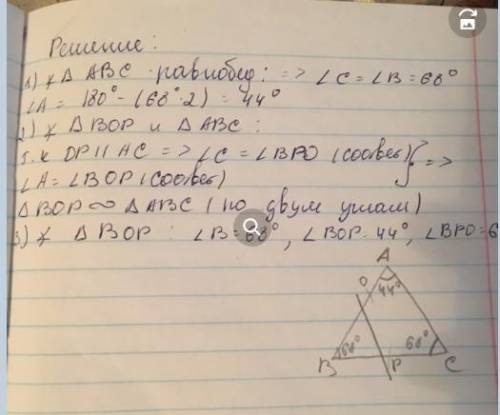 Решение:
1) ∠ Δ ABC равнобед: => ∠C = ∠B = 68°
∠A = 180° - (68°·2) = 44°
2) ∠ Δ BOP и Δ ABC:
т.к OP || AC => ∠C = ∠BPO (соотвес) } =>
∠A = ∠BOP (соотвес)
Δ BOP ∾ Δ ABC (по двум углам)
3) ∠ Δ BOP: ∠B = 68°, ∠BOP = 44°, ∠BPO = 6
A
O
44°
68°
68°
B
P
C